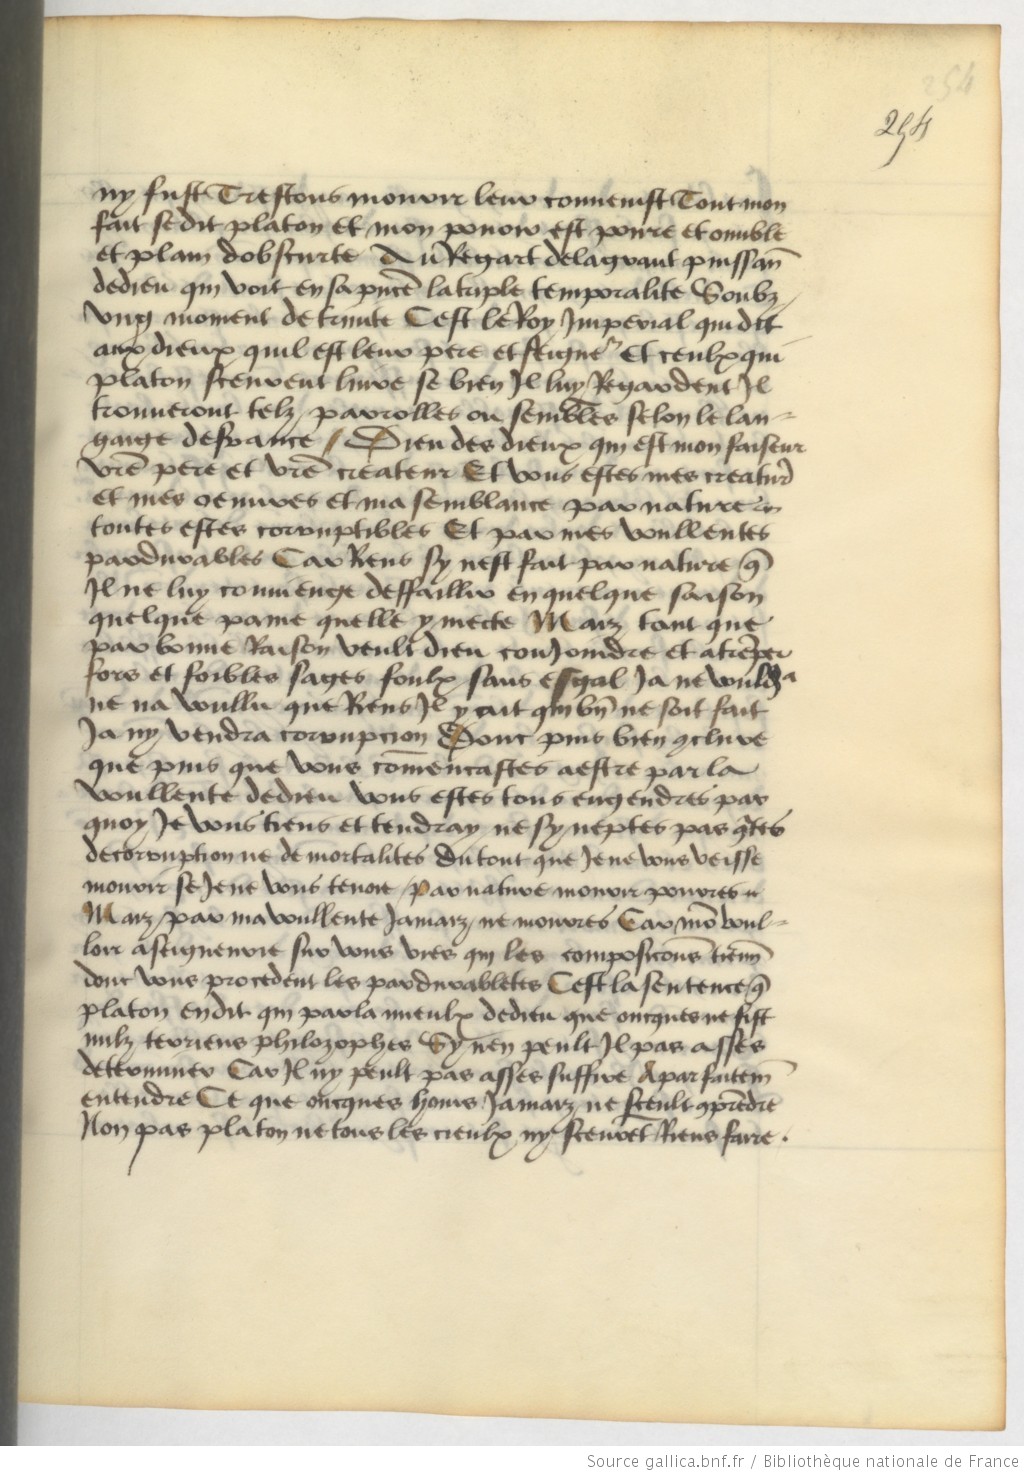 254
254
ny fust Trestous mourir leur convenist Tout mon
fait se dit platon et mon povoir est povre et onuble
et plain dobscurte Au Regart de la grant puissan̄
de dieu qui voit en sa pn̄ce la triple temporalite Soubz
vng moment de trinite Cest le Roy Imperial qui dit
aux dieux quil est leur pere et seigner Et ceulx qui
platon sceuvent livre se bien Il luy Regardent Il
trouveront telz parrolles ou sembles selon le lan-
gaige de france / Dieu des dieux qui est mon faiseur
vr̄e pere et vr̄e createur Et vous estes mes creatur̄
et mes oeuvres et ma semblance par nature
toutes estes corruptibles Et par mes voullentes
pardurables Car Riens sy nest fait par nature q̄
Il ne luy convienge deffaillir en quelque saison
quelque paine quelle y mecte Maiz tant que
par bonne Raison veult dieu conJoindre et atrēper
fors et foibles sages foulx sans esgal Ja ne vouldra
ne na voullu que Riens Il y ait qui bn̄ ne soit fait
Ja ny vendra corrupcion Donc puis bien 9clure
que puis que vous com̄encastes a estre par la
voullente de dieu vous estes tous engendres par
quoy Je vous tiens et tendray ne sy neptes pas q̄tes
de corruption ne de mortalites du tout que Je ne vous veisse
mourir se Je ne vous tenoie / Par nature mourir pourres
Maiz par ma voullente Jamaiz ne mourres Car mō voul-
loir a seigneurie sur vous vies qui les composicōns tiēn̄
dont vous procedent les pardurabletes Cest la sentence q̄
platon en dit qui parla mieulx de dieu que oncques ne fist
nulz terriens philozophes Sy nen peult Il pas asses
determiner Car Il ny peult pas asses suffire A parfaitem̄
entendre Ce que oncques homs Jamaiz ne sceult 9prēdre
Non pas platon ne tous les cieulx ny scevet Riens faire .
Source gallica.bnf.fr / Bibliothèque nationale de France